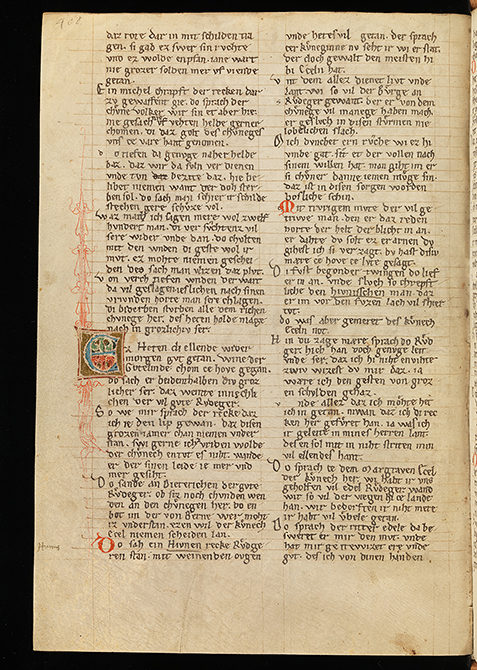 dar rote dar in mit schilden tra
gen. si gad ez swer sin ruchte
vnd ez wolde enpfan. iane wart
nie grozer solden mer vf viende
getan.
in michel chrapft der recken dar
zv gewaffent gie. do sprach der
chvne volker wir sin et aber hie.
ine gesach vf vehten helde gerner
chomen. di daz golt des chvneges
vns ze vare hant genomen.
o riefen da genvge naher helde
baz. daz wir da svln ver dienen
vnde tvn daz bezite daz. hie be
libet niemen want der doh ster
ben sol. do sach man schier ir schilde
stechen gere schuzze vol.
waz mach ich sagen mere wol zwelf
hvndert man. di ver svchtenz vil
sere wider vnde dan. do chvlten
mit den vnden di geste wol ir
mvt. ez mohte niemen gescheiden
den des sach man vlizen daz plvt.
von verch tiefen wnden der wart
da vil geslagen. ieslichen nach sinen
vrivnden horte man sere chlagen.
di biderben stvrben alle dem richen
chvnege her. des heten holde mage
nach in grozlichiv ser.
Ez heten di ellende wider
morgen gvt getan. wine der
Gotelinde chom ze hove gegan.
do sach er beidenthalben div groz
lichen ser. daz weinte inneclich
chen der vil gvte Rvdeger.
o we mir sprach der recke daz
ich ie den lip gewan. daz disen
grozen iamer chan niemen vnder
stan. swi gerne ich vriden wolde
der chvnech entvt es niht. wande
er der sinen leide ie mer vnd
mer gesiht.
o sande an Dieterichen der gvte
Rvdeger. ob siz noch chvnden wen
den an den chvnegen her. do en
bot im der von Berne wer moht
iz vnderstan. ezen wil der kvnech
Ecel niemen scheiden lan.
o sah ein Hvnen recke Rvdge
ren stan. mit weinenden ovgen
vnde hetes vil getan. der sprach
zer kvneginne nv seht ir wi er stat.
der doch gewalt den meisten hi
bi Eceln hat.
vnt dem allez dienet livt vnde
lant. wi so vil der bvrge an
Rvdeger gewant. der er von dem
chvnege vil manege haben mach.
er geslvch in disen stvrmen nie
lobelichen slach.
Mich dvnchet ern rvche wi ez hi
vmbe gat. sit er den vollen nach
sinem willen hat. man giht im er
si chvner danne iemen mvge sin.
daz ist in disen sorgen worden
bosliche schin.
Mit trvrigem mvte der vil ge
triwe man. den er daz reden
horte der helt der blicht in an.
er dahte dv solt ez er arnen dv
gihest ich si ver zagt. dv hast disiv
mare ze hove ze lvte gesagt.
Di fvst begonder twingen do lief
er in an. vnde slvch so chreftec
lich den hvnisschen man. daz
er im vor den fvzen lach vil schier
tot.
do was aber gemeret des kvnech
Eceln not.
Hin dv zage mare sprach do Rvd
ger. hich han doch genvge leit
vnde ser. daz ich hi niht envihte
zwiv wizest dv mir daz. ia
ware ich den gesten von groz
en schvlden gehaz.
vnde allez daz ich mohte het
ich in getan. niwan daz ich di rec
ken her gefvret han. ia was ich
ir geleite in mines herren lant.
des en sol mit in niht striten min
vil ellendes hant.
Do sprach ze dem margraven Ecel
der kvnech her. wi habt ir vns
geholfen vil edel Rvdeger. wand
wir so vil der veigen hi ze lande
han. wir bedorften ir niht mere
ir habt vil vbele getan.
Do sprach der ritter edele da be
sweret er mir den mvt. vnde
hat mir geitewizet ere vnde
gvt. des ich von dinen handen